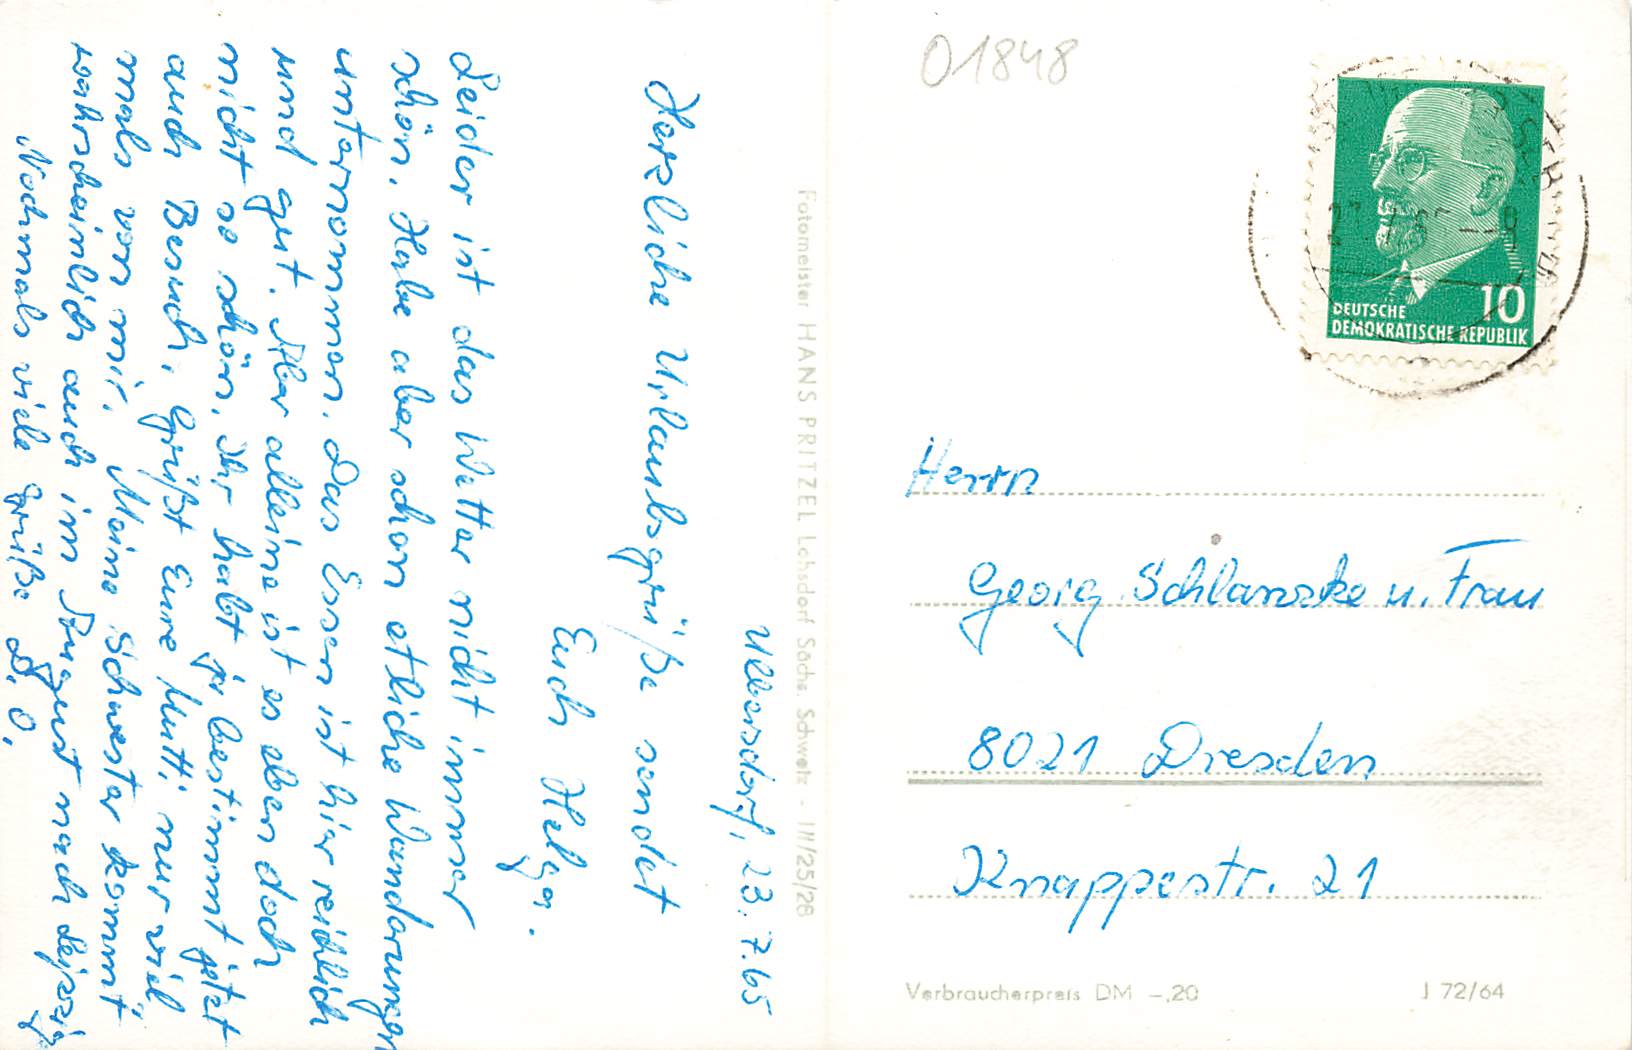 Ulbersdorf, 23.7.65
Herzliche Urlaubsgrüße sendet
Euch Helga.
Leider ist das Wetter nicht immer
schön. Habe aber schon etliche Wanderungen
unternommen. Das Essen ist hier reichlich
und gut. Aber alleine ist es eben doch
nicht so schön. Ihr habt ja bestimmt jetzt
auch Besuch. Grüßt Eure Mutti nur viel
mals von mir. Meine Schwester kommt
wahrscheinlich auch im August nach Leipzig
Nochmals viele Grüße D. O.
Fotomeister HANS PRITZEL Lohsdorf Sächs. Schweiz - III/25/28
01848
DEUTSCHE
DEMOKRATISCHE REPUBLIK
10
Herrn
Georg Schlanzke u. Frau
8021 Dresden
Knappestr. 21
Verbraucherpreis DM -,20
J 72/64